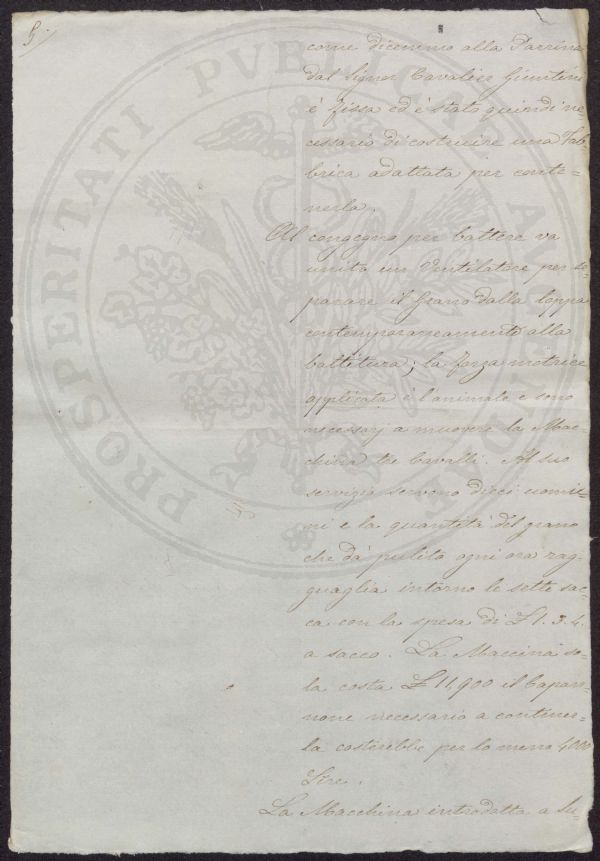 5/
come dicemmo alla Parrina
dal Signor Cavaliere Giuntini
è fissa ed è stato quindi ne-
cessario di costruire una Fab-
brica adattata per conte-
nerla.
Al congegno per battere va
unito un Ventilatore per se-
parare il Grano dalla loppa
contemporaneamente alla
battitura; la forza motrice
applicata è l'animale e sono
necessarj a muovere la Mac-
china tre Cavalli. Al suo
servizio servono dieci uomi-
ni e la quantità del grano
che dà pulito ogni ora rag-
guaglia intorno le sette sac-
ca con la spesa di £ 1.3.4.
a sacco. La Maccina so-
la costa £ 11,900 il Capan-
none necessario a contener-
la costerebbe per lo meno 4000
Lire.
La Macchina introdotta a Su-
PROSPERITATI PVBLICAE AVGENDAE